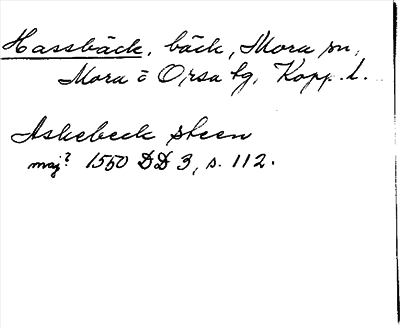 Hassbäck, bäck, Mora sn,
Mora o Orsa tg, Kopp. l.
Askebeck steen
maj? 1550 DD 3, s. 112.